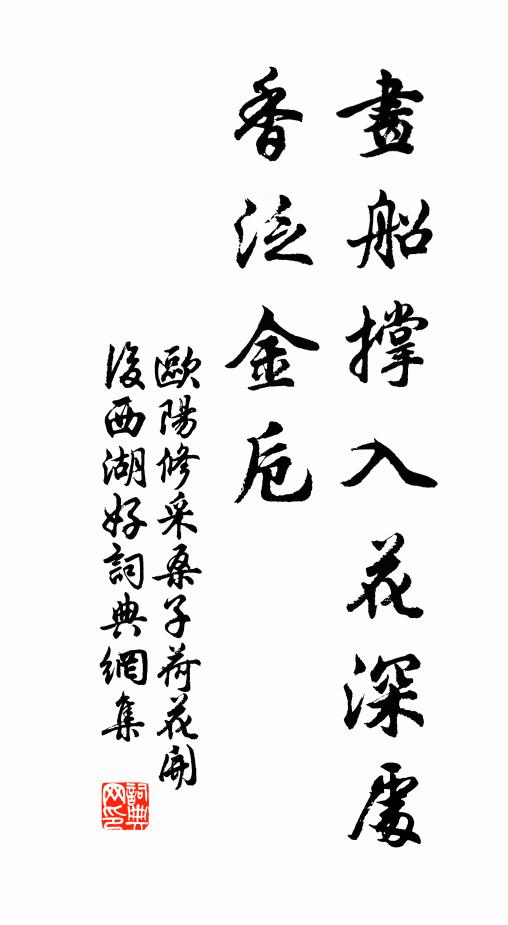 畫船撐入花深處
香泛金卮
歐陽修采桑子荷花開
後西湖好詞典網集
詞典
网印